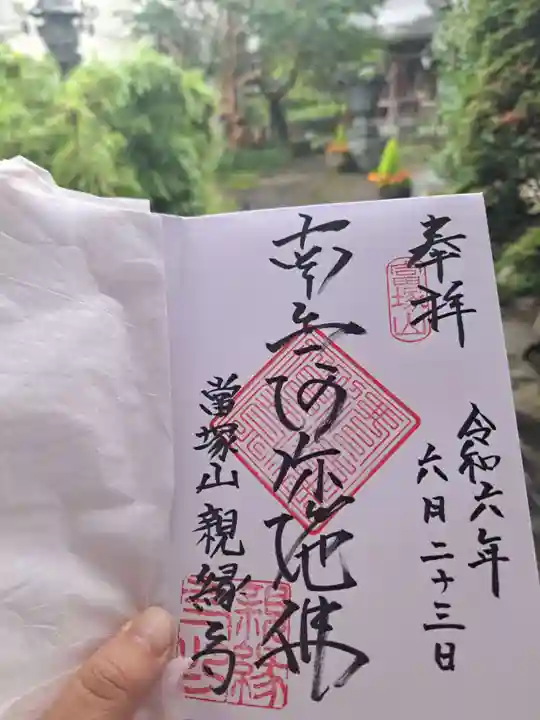 奉拝
令和六年
六月二十三日
南无阿弥陀佛
當塚山 親縁寺
當塚山